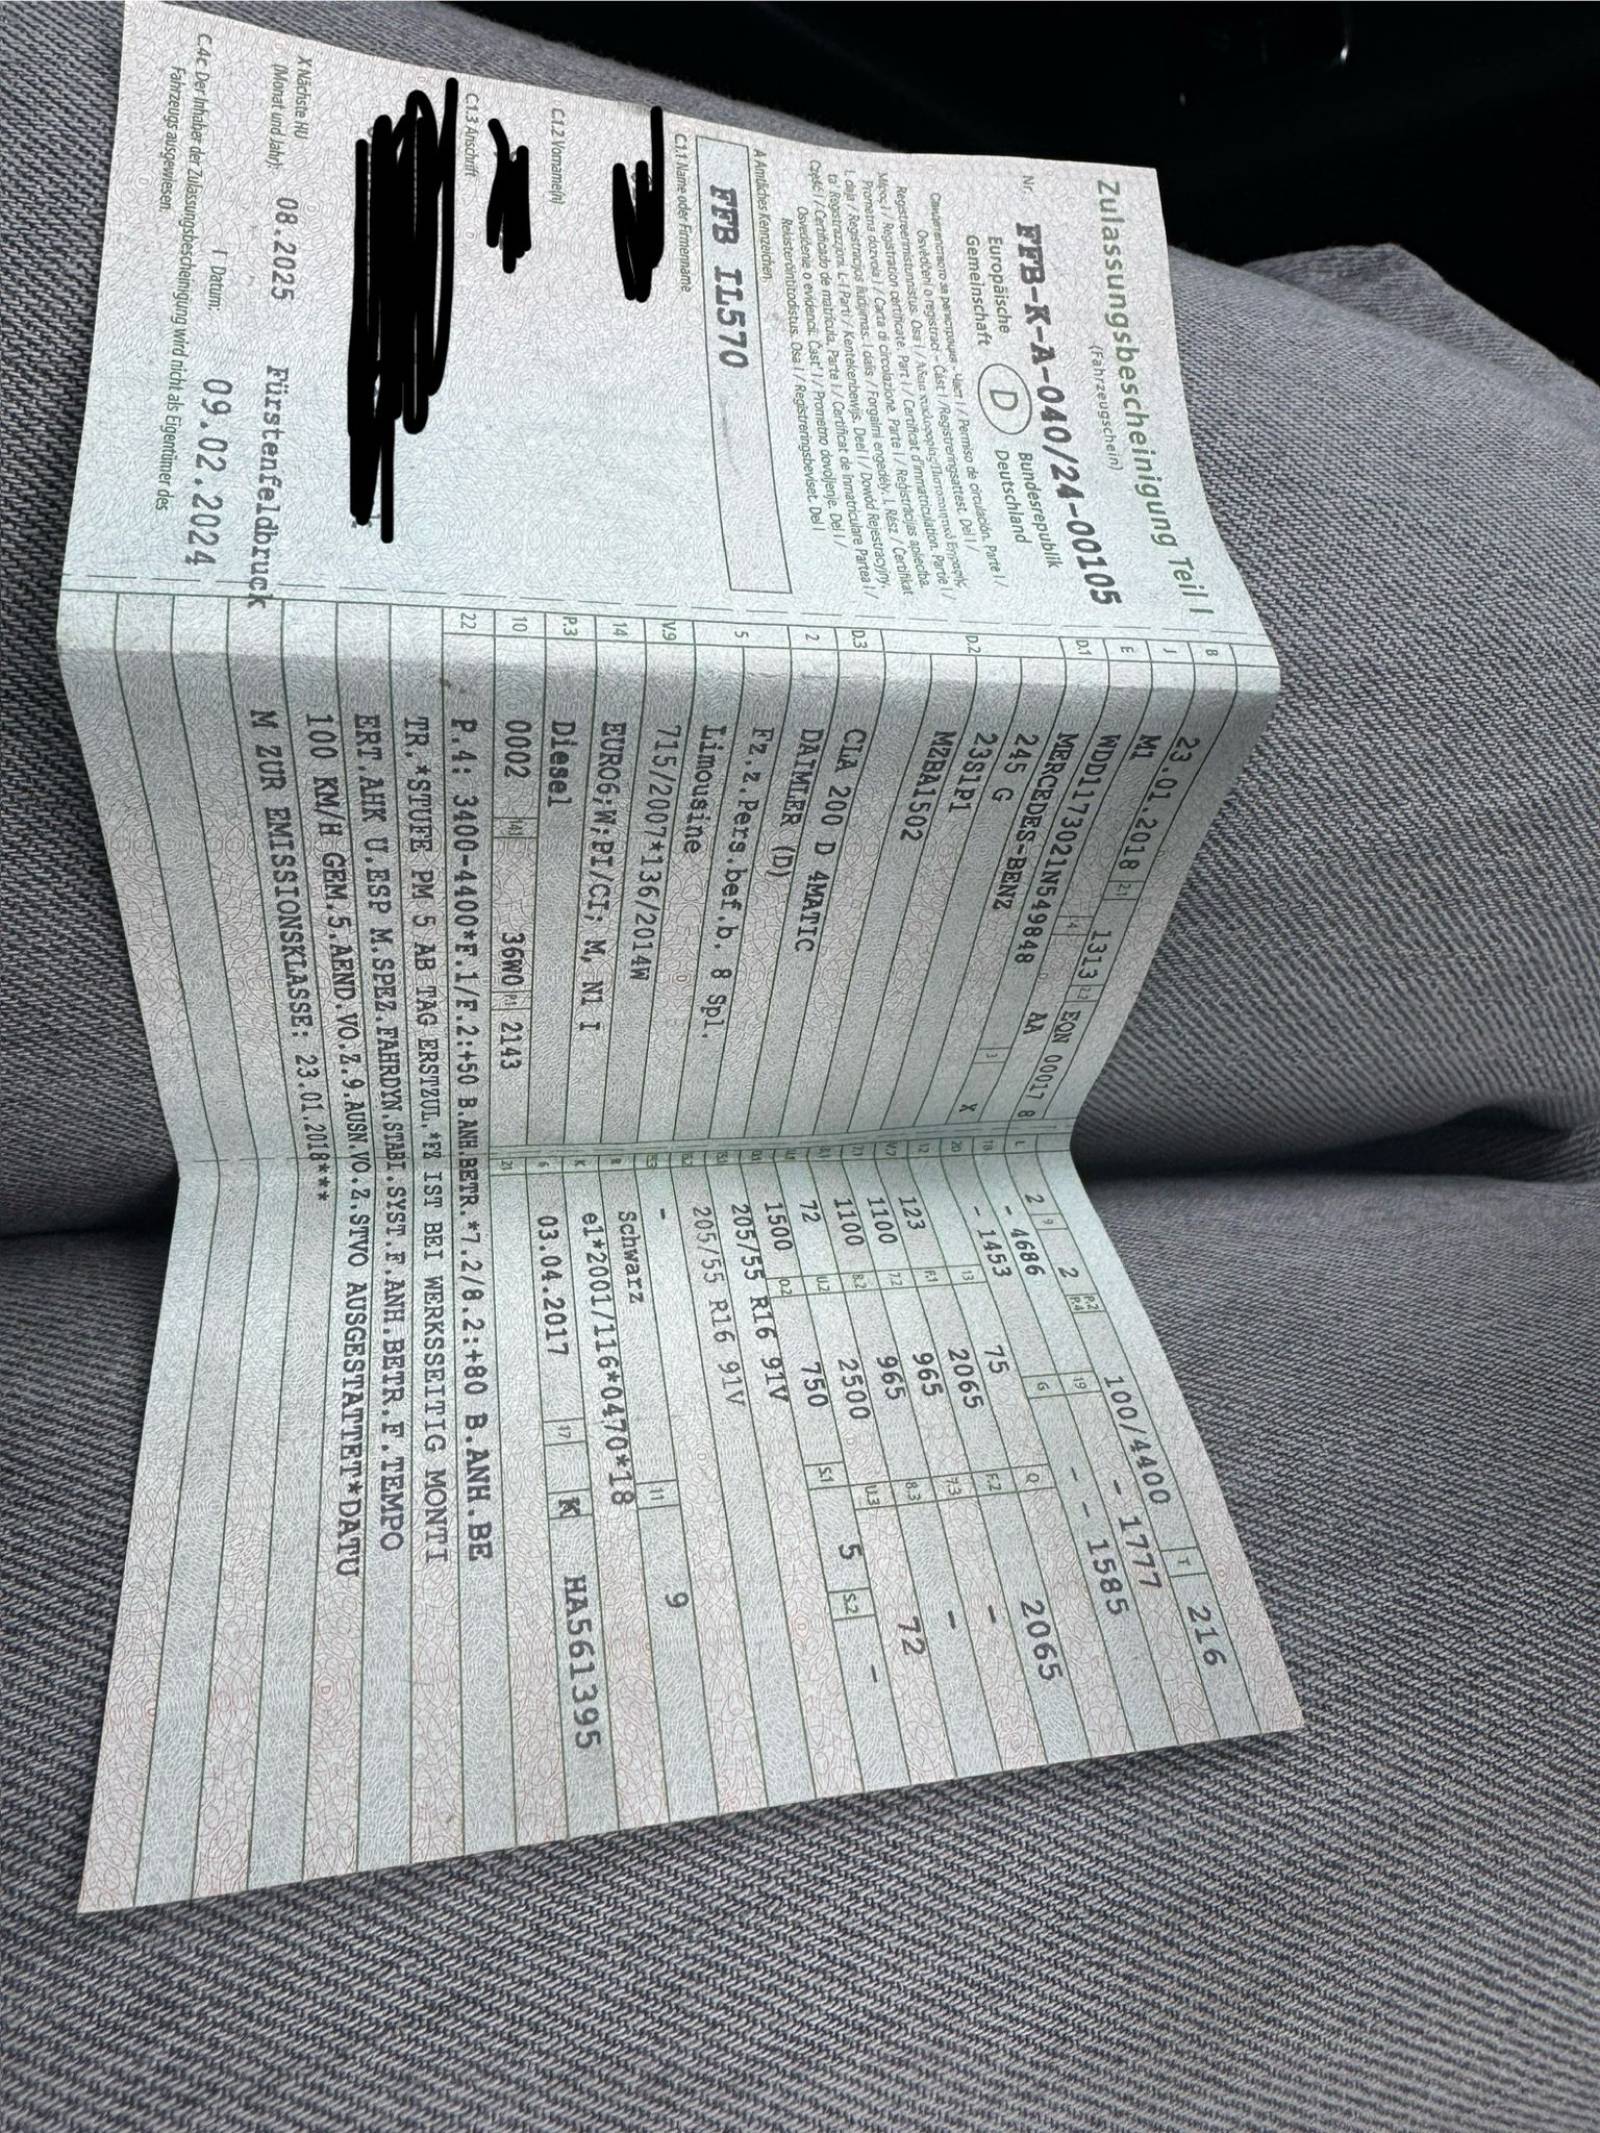 Zulassungsbescheinigung Teil I
(Fahrzeugschein)
Nr. FFB-K-A-040/24-00105
Europäische Gemeinschaft D Bundesrepublik Deutschland
A Amtliches Kennzeichen
FFB IL570
C.1.1 Name oder Firmenname
C.1.2 Vorname(n)
C.1.3 Anschrift
X Nächste HU
(Monat und Jahr): 08.2025 Fürstenfeldbruck
I Datum: 09.02.2024
C.4c Der Inhaber der Zulassungsbescheinigung wird nicht als Eigentümer des
Fahrzeugs ausgewiesen.
B 23.01.2018 2.1 1313 2.2 EQN 00017 8
J M1 4 AA
E WDD1173021N549848 3 X
D.1 MERCEDES-BENZ
D.2 245 G
23S1P1
MZBA1502
D.3 CLA 200 D 4MATIC
2 DAIMLER (D)
5 Fz.z.Pers.bef.b. 8 Spl.
Limousine
V.9 715/2007*136/2014W
14 EURO6;W;PI/CI; M, N1 I
P.3 Diesel
10 0002 14.1 36W0 P.1 2143
L 2 9 2 P.2 P.4 100/4400 T 216
18 - 4686 19 - 1777
20 - 1453 G - - 1585
12 - 13 75 Q -
V.7 123 F.1 2065 F.2 2065
7.1 1100 7.2 965 7.3 -
8.1 1100 8.2 965 8.3 -
U.1 72 U.2 2500 U.3 72
O.1 1500 O.2 750 S.1 5 S.2 -
15.1 205/55 R16 91V
15.2 205/55 R16 91V
15.3 -
R Schwarz 11 9
K e1*2001/116*0470*18
6 03.04.2017 17 K HA561395
21
22 P.4: 3400-4400*F.1/F.2:+50 B.ANH.BETR.*7.2/8.2:+80 B.ANH.BE
TR.*STUFE PM 5 AB TAG ERSTZUL.*FZ IST BEI WERKSSEITIG MONTI
ERT.AHK U.ESP M.SPEZ.FAHRDYN.STABI.SYST.F.ANH.BETR.F.TEMPO
100 KM/H GEM.5.AEND.VO.Z.9.AUSN.VO.Z.STVO AUSGESTATTET*DATU
M ZUR EMISSIONSKLASSE: 23.01.2018***